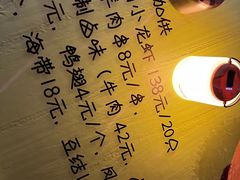 加供
小龙虾 138元/20只
羊肉串8元/串、
制卤味（牛肉42元、
元、鸭翅4元/个、凤
海带18元、豆